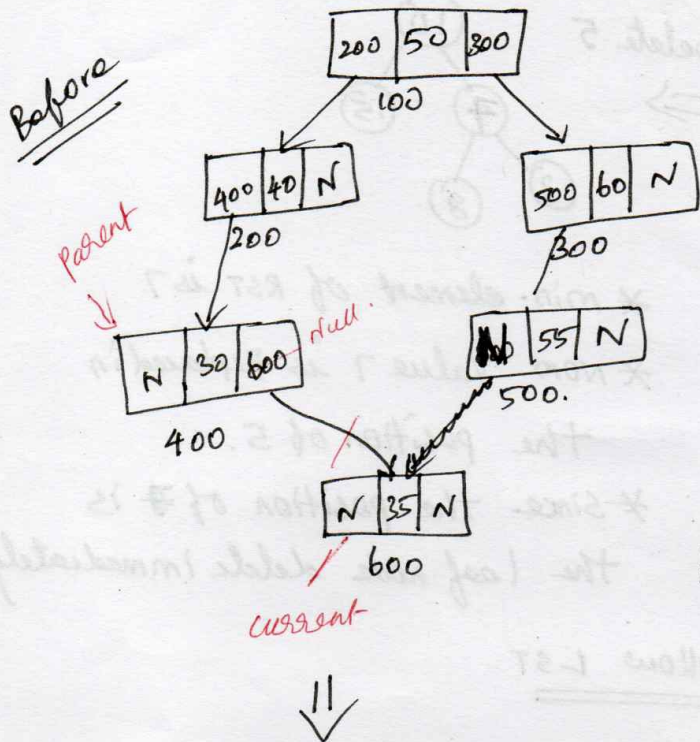 200 50 300
100
Before
400 40 N
200
500 60 N
300
Parent
N 30 600
Null.
400
55 N
500.
N 35 N
600
current